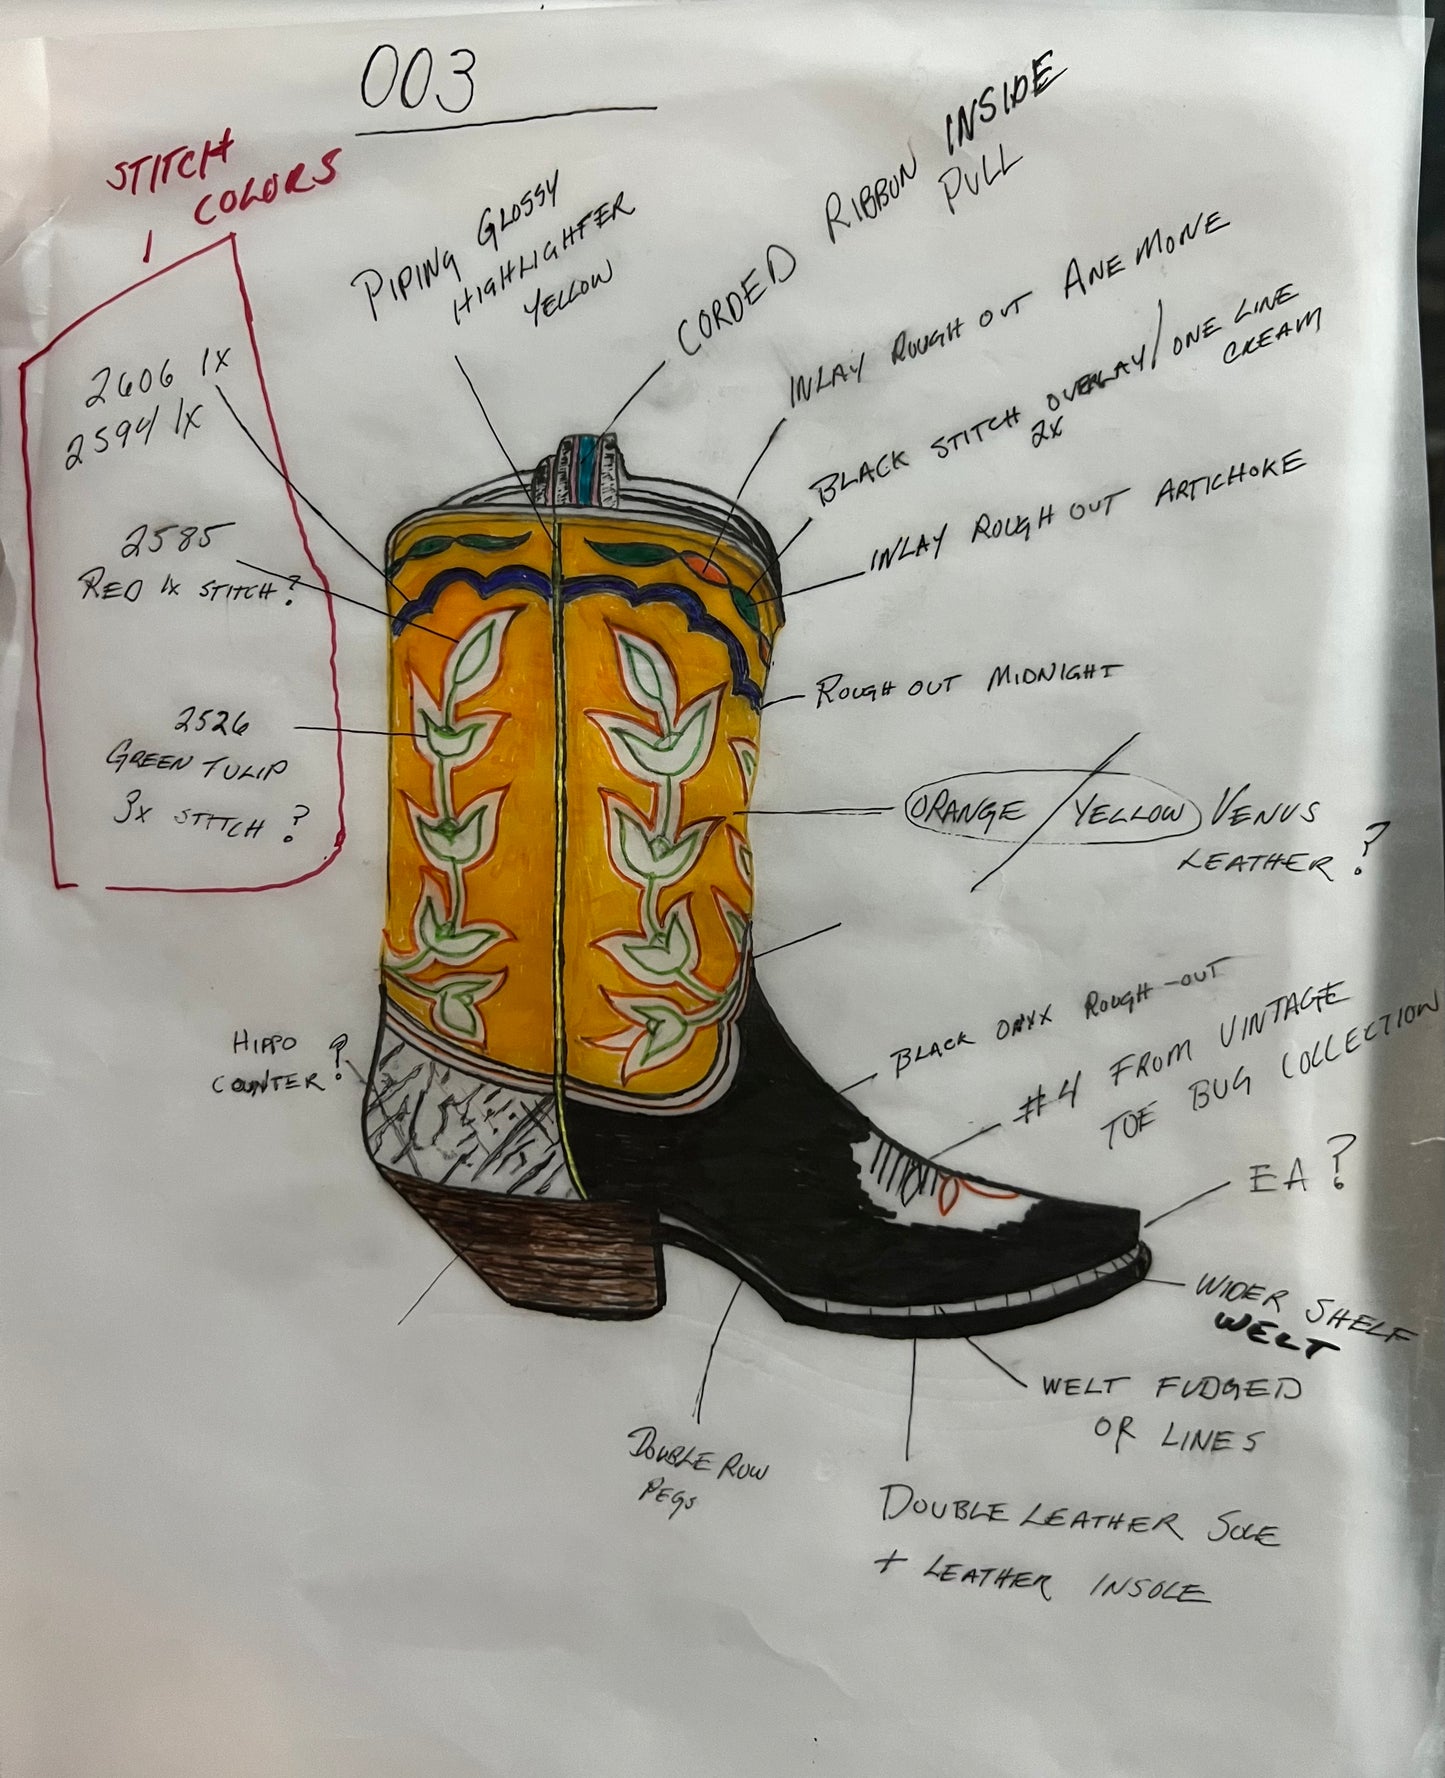 003
STITCH
COLORS
2606 1X
2594 1X
2585
RED 1X STITCH?
2526
GREEN TULIP
3X STITCH?
PIPING GLOSSY
HIGHLIGHTER
YELLOW
CORDED RIBBON INSIDE
PULL
INLAY ROUGH OUT ANEMONE
BLACK STITCH OVERLAY/ONE LINE
2X
CREAM
INLAY ROUGH OUT ARTICHOKE
ROUGH OUT MIDNIGHT
ORANGE / YELLOW VENUS
LEATHER?
HIPPO
COUNTER?
BLACK ONYX ROUGH-OUT
#4 FROM VINTAGE
TOE BUG COLLECTION
EA?
WIDER SHELF
WELT
WELT FUDGED
OR LINES
DOUBLE ROW
PEGS
DOUBLE LEATHER SOLE
+ LEATHER INSOLE